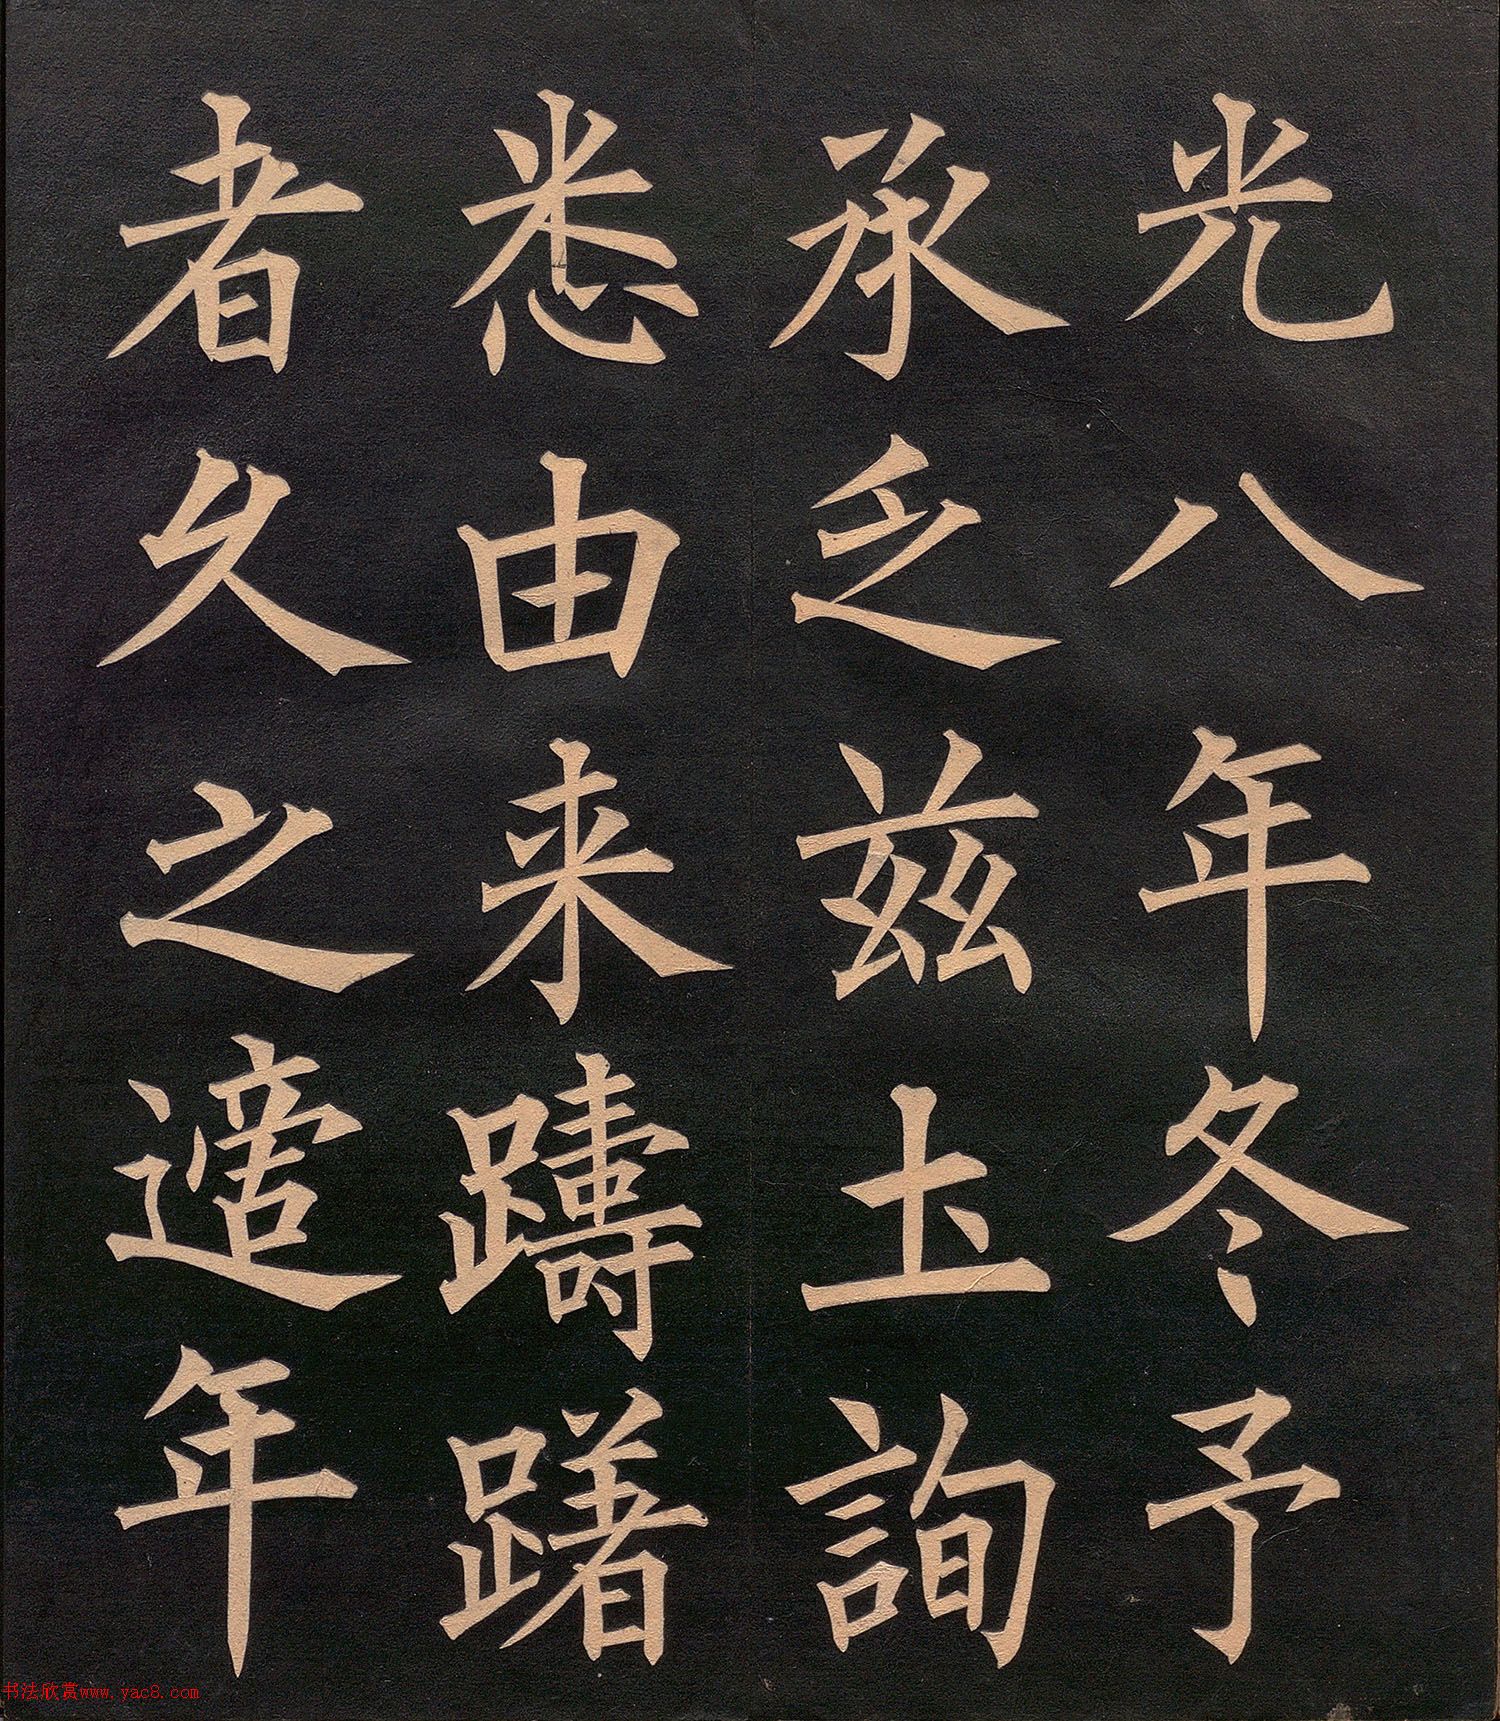 光八年冬予
承乏茲圡詢
悉由来躊躇
者久之適年
书法欣赏www.yac8.com